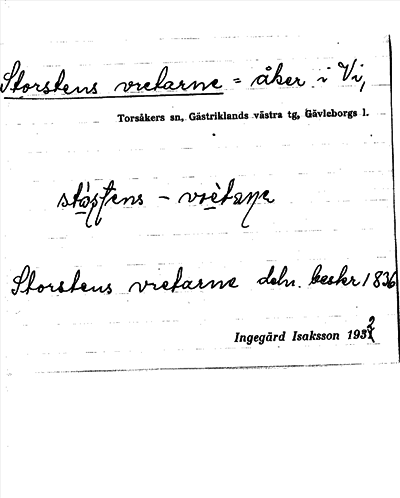 Storstens vretarne = åker i Vi,
Torsåkers sn, Gästriklands västra tg, Gävleborgs l.
Storstens vretarne deln. beskr 1836
Ingegärd Isaksson 1932